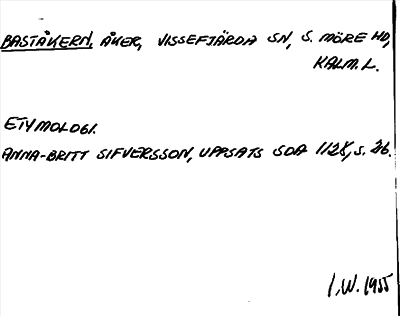 BASTÅKERN, ÅKER, VISSEFJÄRDA SN, S. MÖRE HD,
KALM. L.
ETYMOLOGI.
ANNA-BRITT SIFVERSSON, UPPSATS SOA 1128, S. 26.
I.W. 1955